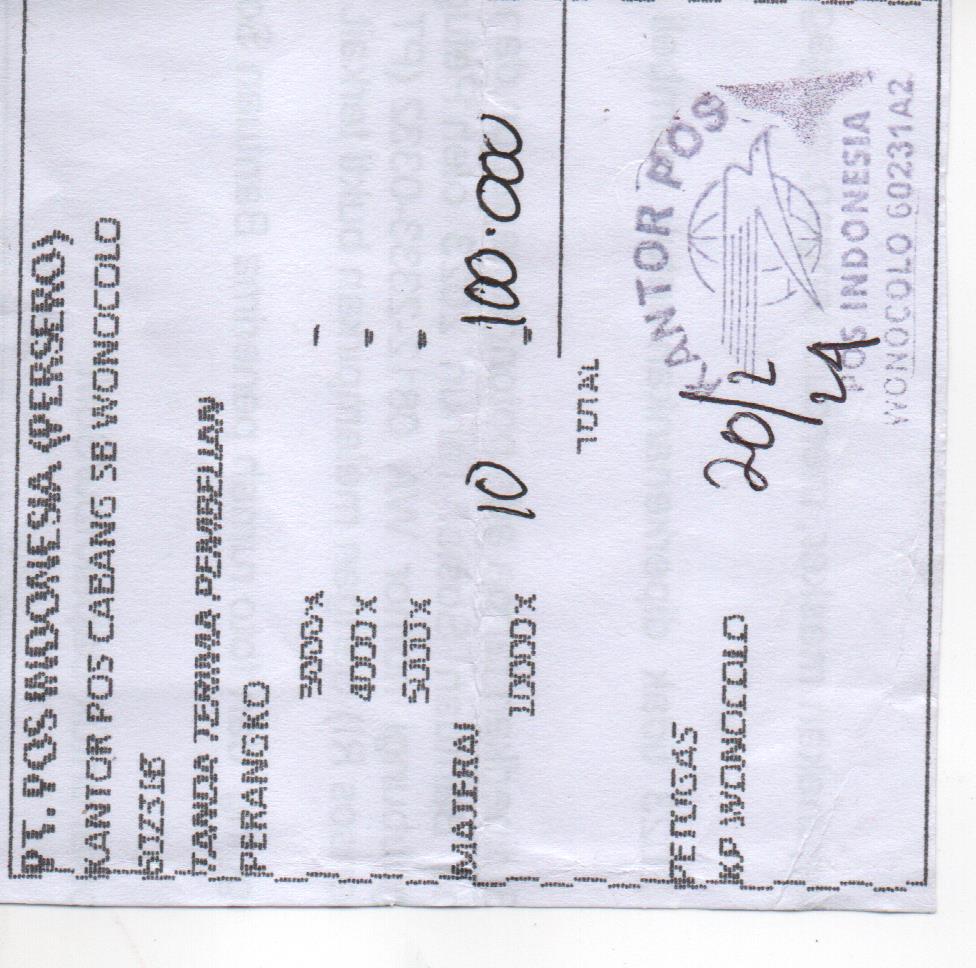 PT. POS INDONESIA (PERSERO)
KANTOR POS CABANG SB WONOCOLO
60231B
TANDA TERIMA PEMBELIAN
PERANGKO
3000 X -
4000 X -
5000 X -
MATERAI
10000 X 10 - 100.000
TOTAL
PETUGAS
KP WONOCOLO
20/2
24
KANTOR POS
POS INDONESIA
WONOCOLO 60231A2